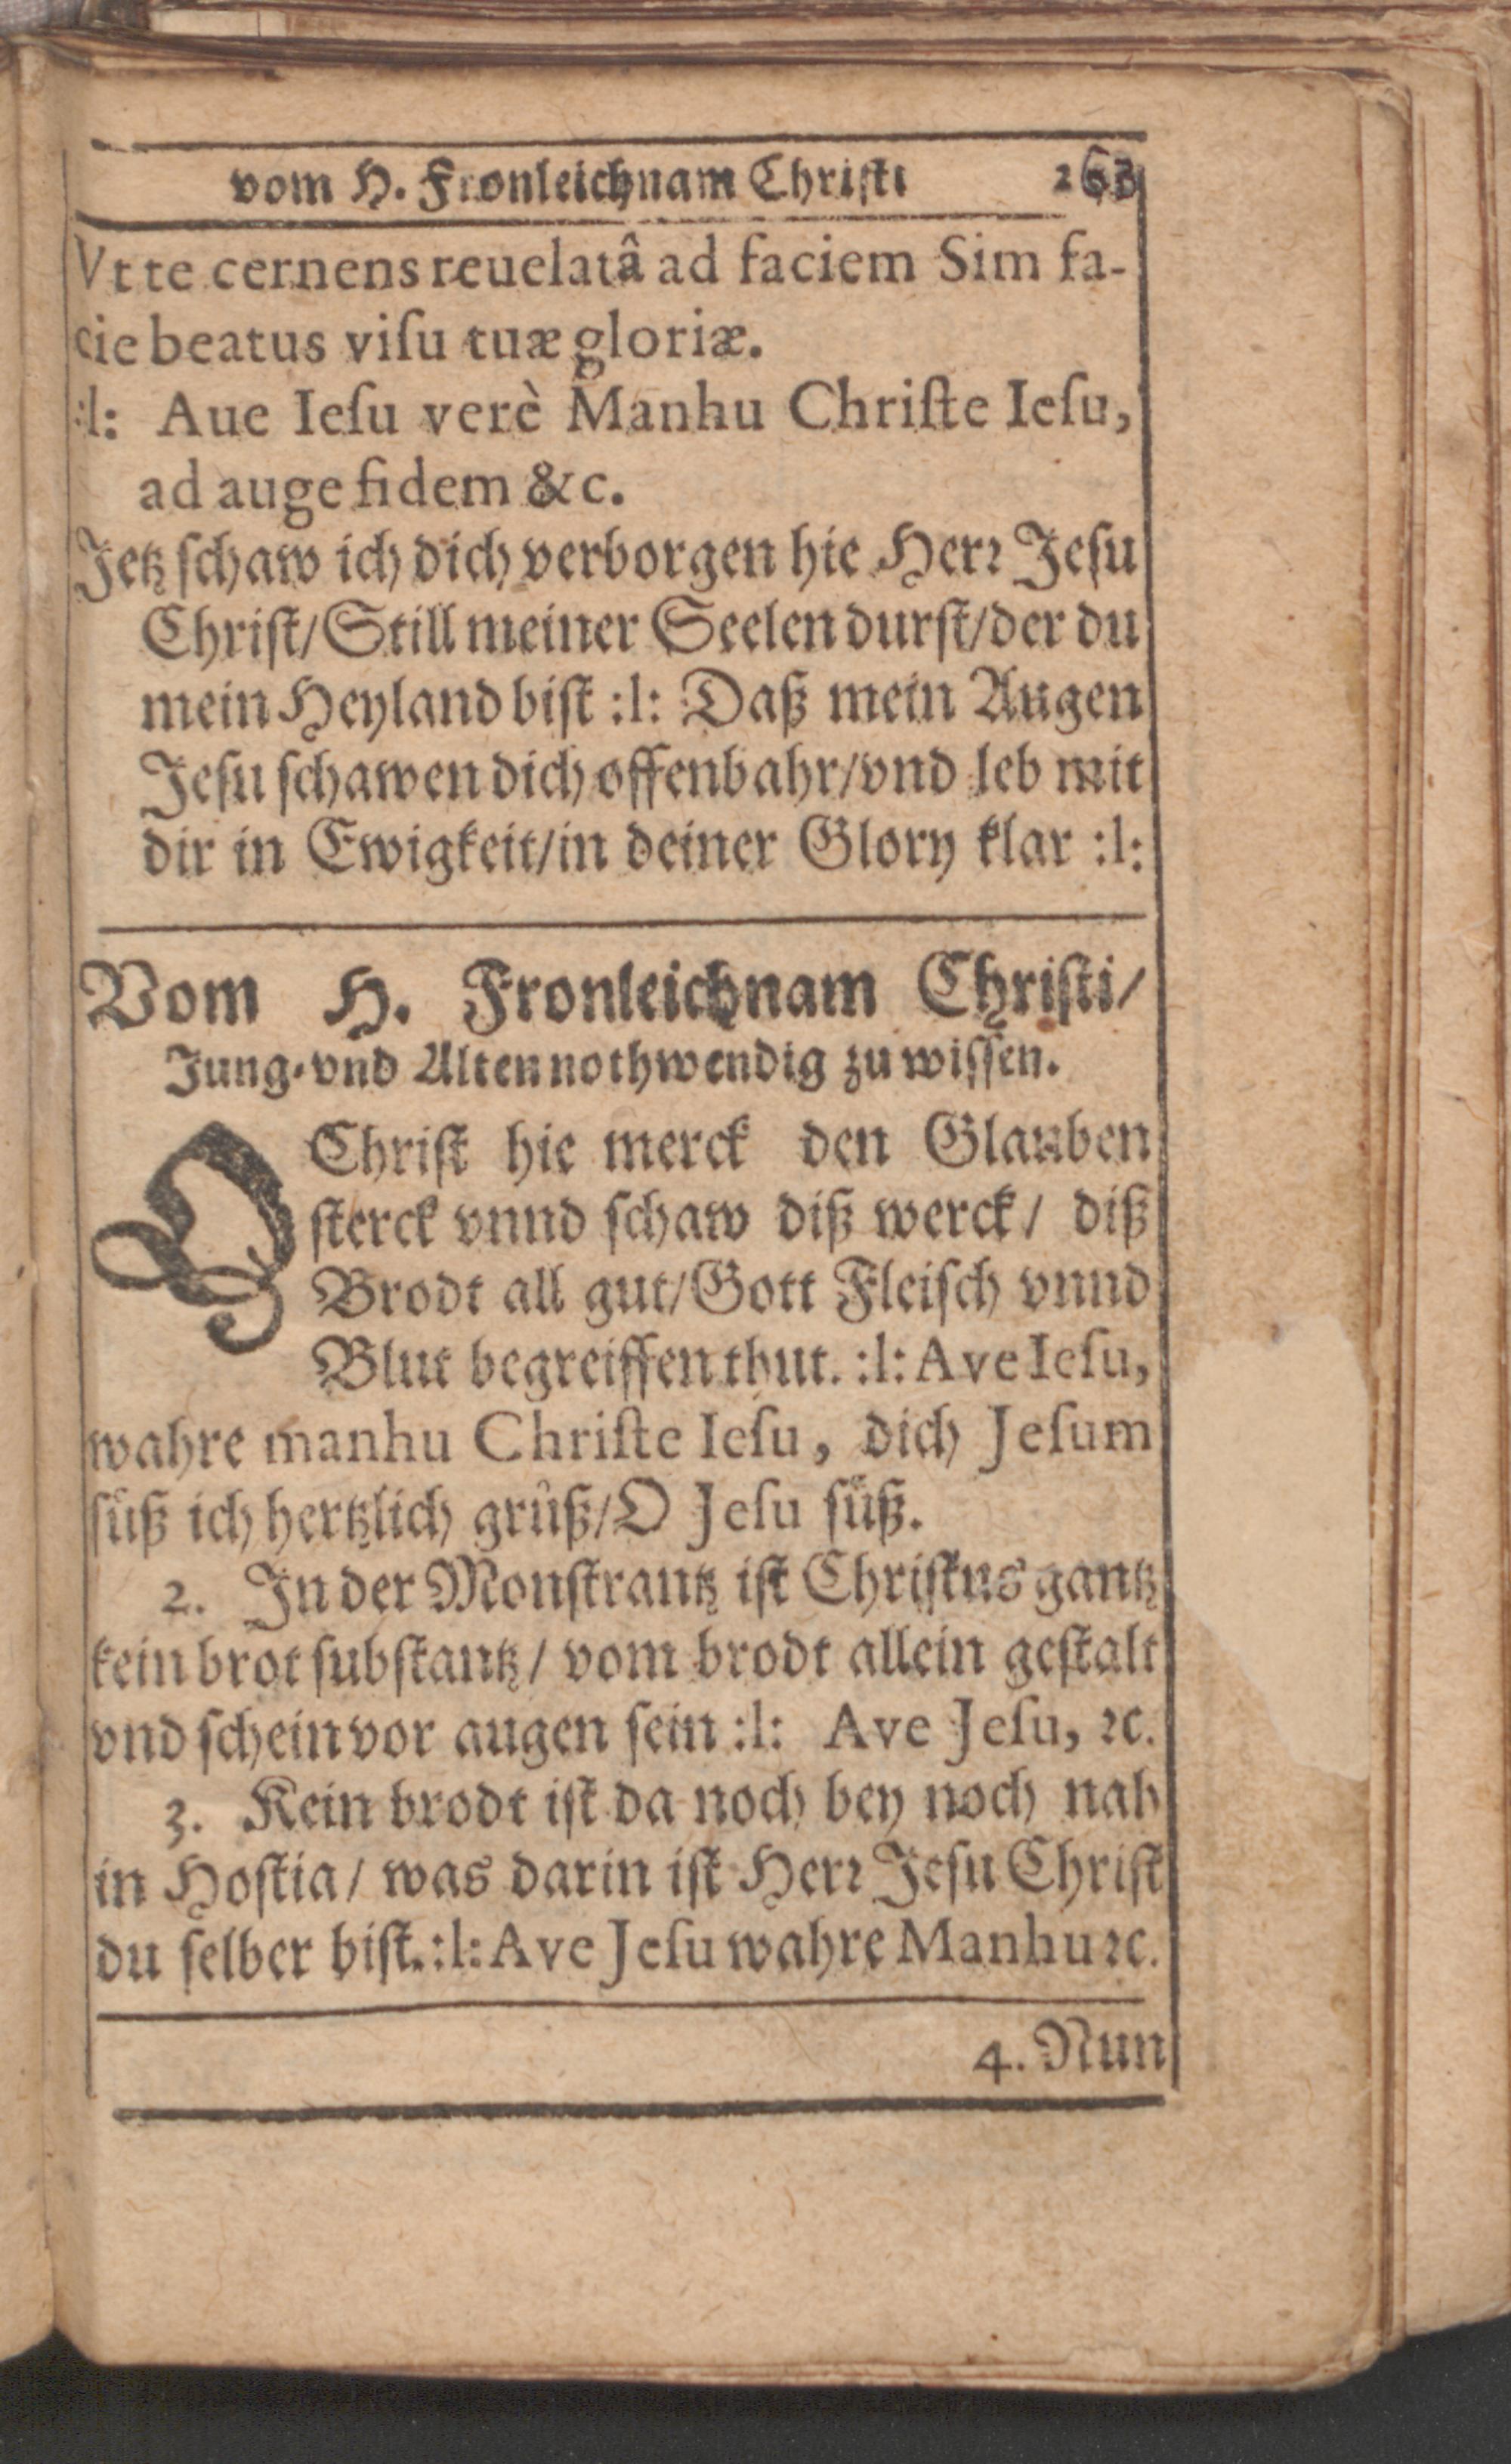 vom H. Fronleichnam Christi 263
Vt te cernens reuelatâ ad faciem Sim fa-
cie beatus viſu tuæ gloriæ.
:l: Aue Ieſu verè Manhu Chriſte Ieſu,
ad auge fidem &c.
Jetz ſchaw ich dich verborgen hie Herꝛ Jeſu
Chriſt/Still meiner Seelen durſt/der du
mein Heyland biſt :l: Daß mein Augen
Jeſu ſchawen dich offenbahr/vnd leb mit
dir in Ewigkeit/in deiner Glory klar :l:
Vom H. Fronleichnam Chriſti/
Jung- vnd Alten nothwendig zu wiſſen.
O Chriſt hie merck den Glauben
ſterck vnnd ſchaw diß werck/ diß
Brodt all gut/Gott Fleiſch vnnd
Blut begreiffen thut. :l: Ave Ieſu,
wahre manhu Chriſte Ieſu, dich Jeſum
ſuͤß ich hertzlich gruͤß/O Jeſu ſuͤß.
2. In der Monſtrantz iſt Chriſtus gantz
kein brot ſubſtantz/ vom brodt allein geſtalt
vnd ſchein vor augen ſein :l: Ave Jeſu, ꝛc.
3. Kein brodt iſt da noch bey noch nah
in Hoſtia/ was darin iſt Herꝛ Jeſu Chriſt
du ſelber biſt. :l: Ave Jeſu wahre Manhu ꝛc.
4. Nun